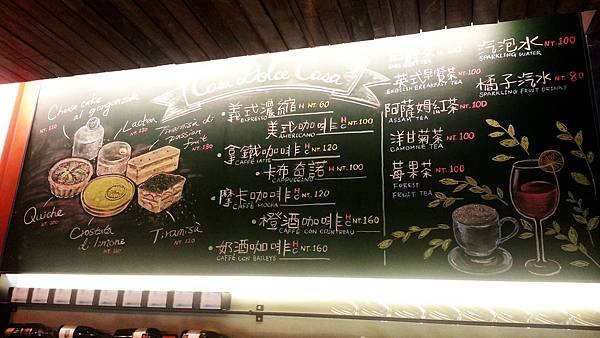 Casa Dolce Casa
Cheese cake
al gorgonzola
NT. 120
Lactea
NT. 120
Tiramisù di
passion
fruit
NT. 130
Quiche
NT. 120
Crostata
di limone
NT. 120
Tiramisù
NT. 120
義式濃縮 H NT. 60
ESPRESSO
美式咖啡 H C NT. 100
AMERICANO
拿鐵咖啡 H C NT. 120
CAFFÈ LATTE
卡布奇諾 H NT. 100
CAPPUCCINO
摩卡咖啡 H C NT. 120
CAFFÈ MOCHA
橙酒咖啡 H C NT. 160
CAFFÈ CON COINTREAU
奶酒咖啡 H C NT. 160
CAFFÈ CON BAILEYS
英式早餐茶 NT. 100
ENGLISH BREAKFAST TEA
阿薩姆紅茶 NT. 100
ASSAM TEA
洋甘菊茶 NT. 100
CAMOMILE TEA
莓果茶 NT. 100
FOREST
FRUIT TEA
汽泡水 NT. 100
SPARKLING WATER
橘子汽水 NT. 80
SPARKLING FRUIT DRINKS